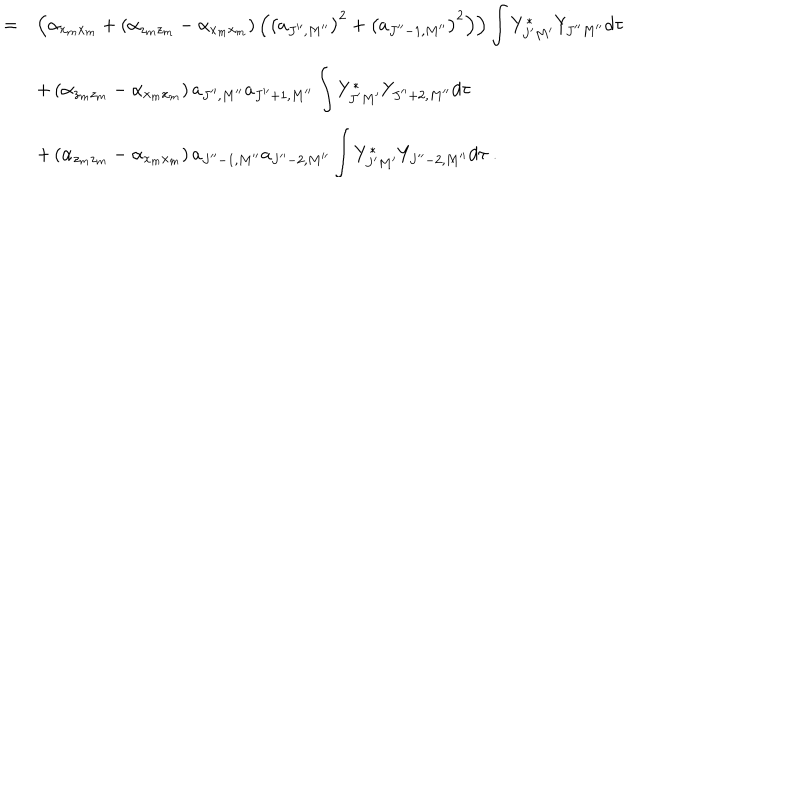 = (α_{x_m x_m} + (α_{z_m z_m} − α_{x_m x_m}) ((a_{J'',M''})^2 + (a_{J''−1,M''})^2)) ∫ Y^*_{J'M'} Y_{J''M''} dτ
+ (α_{z_m z_m} − α_{x_m x_m}) a_{J'',M''} a_{J''+1,M''} ∫ Y^*_{J'M'} Y_{J''+2,M''} dτ
+ (α_{z_m z_m} − α_{x_m x_m}) a_{J''−1,M''} a_{J''−2,M''} ∫ Y^*_{J'M'} Y_{J''−2,M''} dτ .